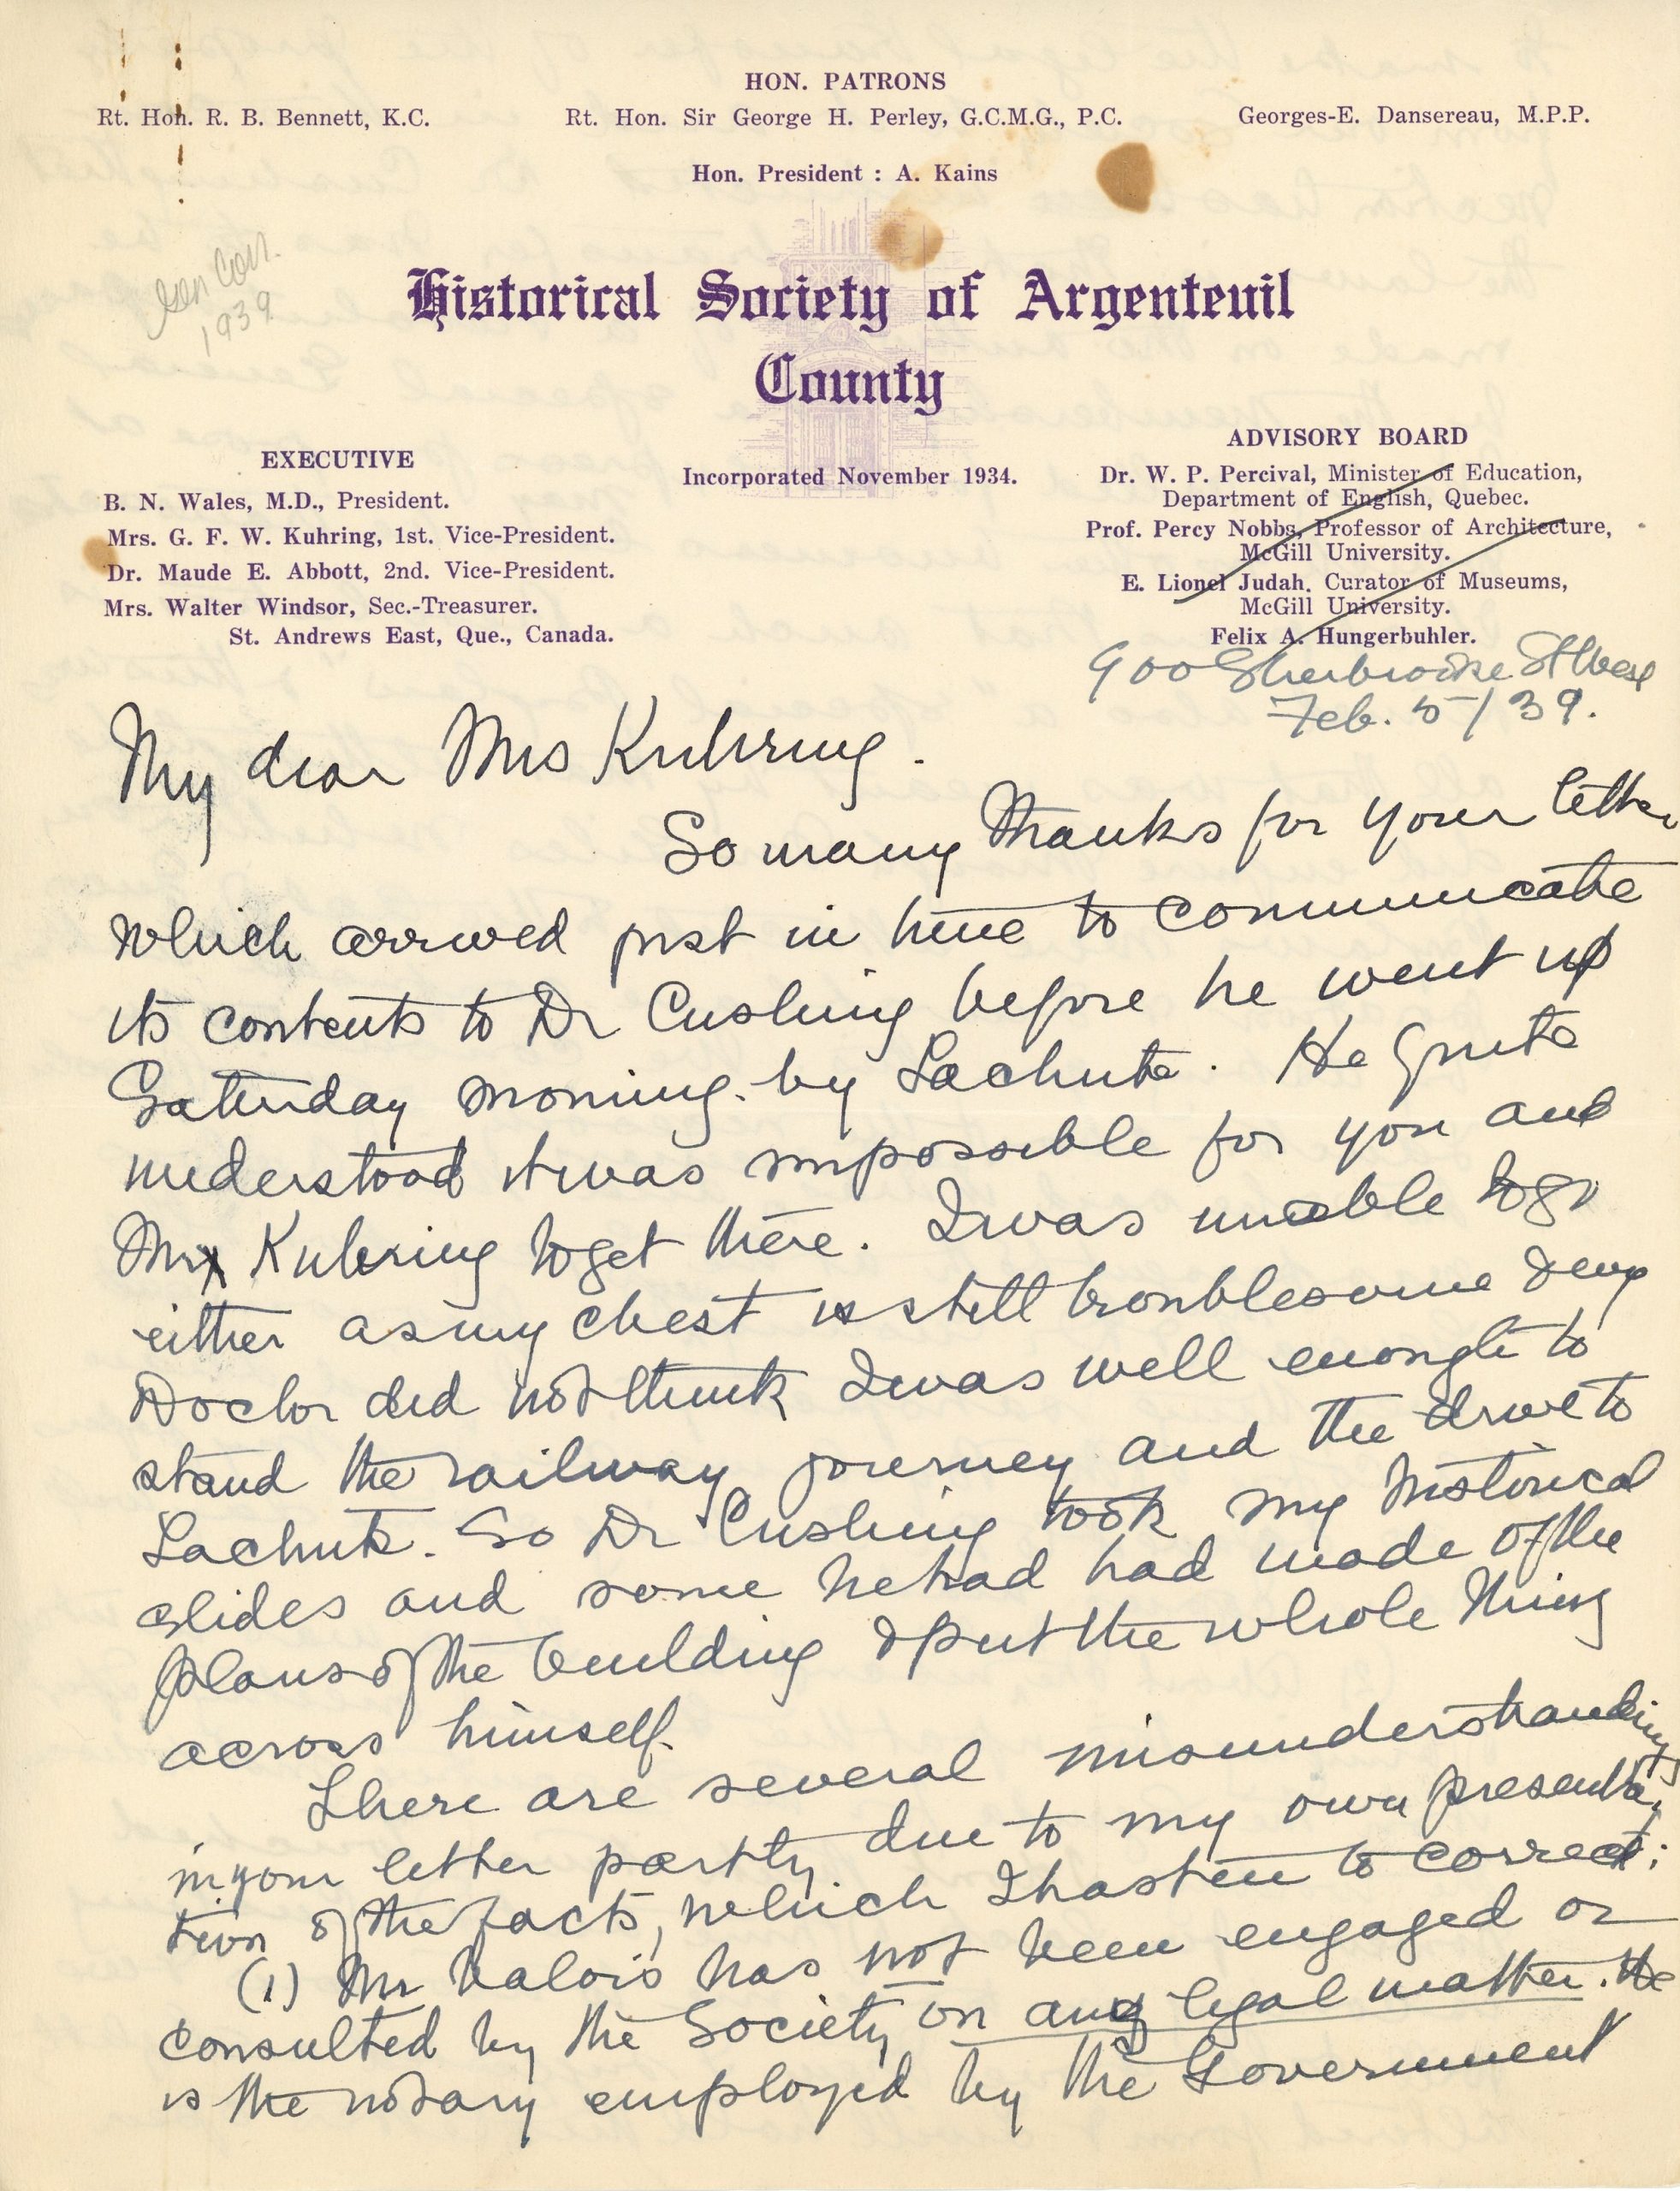 HON. PATRONS
Rt. Hon. R. B. Bennett, K.C. Rt. Hon. Sir George H. Perley, G.C.M.G., P.C. Georges-E. Dansereau, M.P.P.
Hon. President : A. Kains
Gen Corr.
1939
Historical Society of Argenteuil
County
Incorporated November 1934.
EXECUTIVE
B. N. Wales, M.D., President.
Mrs. G. F. W. Kuhring, 1st. Vice-President.
Dr. Maude E. Abbott, 2nd. Vice-President.
Mrs. Walter Windsor, Sec.-Treasurer.
St. Andrews East, Que., Canada.
ADVISORY BOARD
Dr. W. P. Percival, Minister of Education,
Department of English, Quebec.
Prof. Percy Nobbs, Professor of Architecture,
McGill University.
E. Lionel Judah. Curator of Museums,
McGill University.
Felix A. Hungerbuhler.
900 Sherbrooke St West
Feb. 5/39.
My dear Mrs Kuhring.
So many thanks for your letter
which arrived just in time to communicate
its contents to Dr Cushing before he went up
Saturday morning by Lachute. He quite
understood it was impossible for you and
Mr Kuhring to get there. I was unable to go
either as my chest is still troublesome & my
Doctor did not think I was well enough to
stand the railway journey and the drive to
Lachute. So Dr Cushing took my historical
slides and some he had had made of the
plans of the building & put the whole thing
across himself.
There are several misunderstandings
in your letter partly due to my own presenta-
tion of the facts, which I hasten to correct:
(1) Mr Valois has not been engaged or
consulted by the Society on any legal matter. He
is the notary employed by the Government